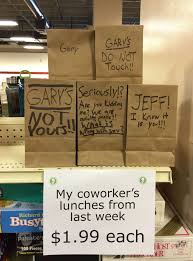 Gary
GARY'S
DO NOT
TOUCH!!
GARY'S
NOT
YOURS!!
Seriously!?
Are you kidding
me? We are
What is
wrong with you?!
JEFF!
I know it
is you!!!
My coworker's
lunches from
last week
$1.99 each
Richard
Busy